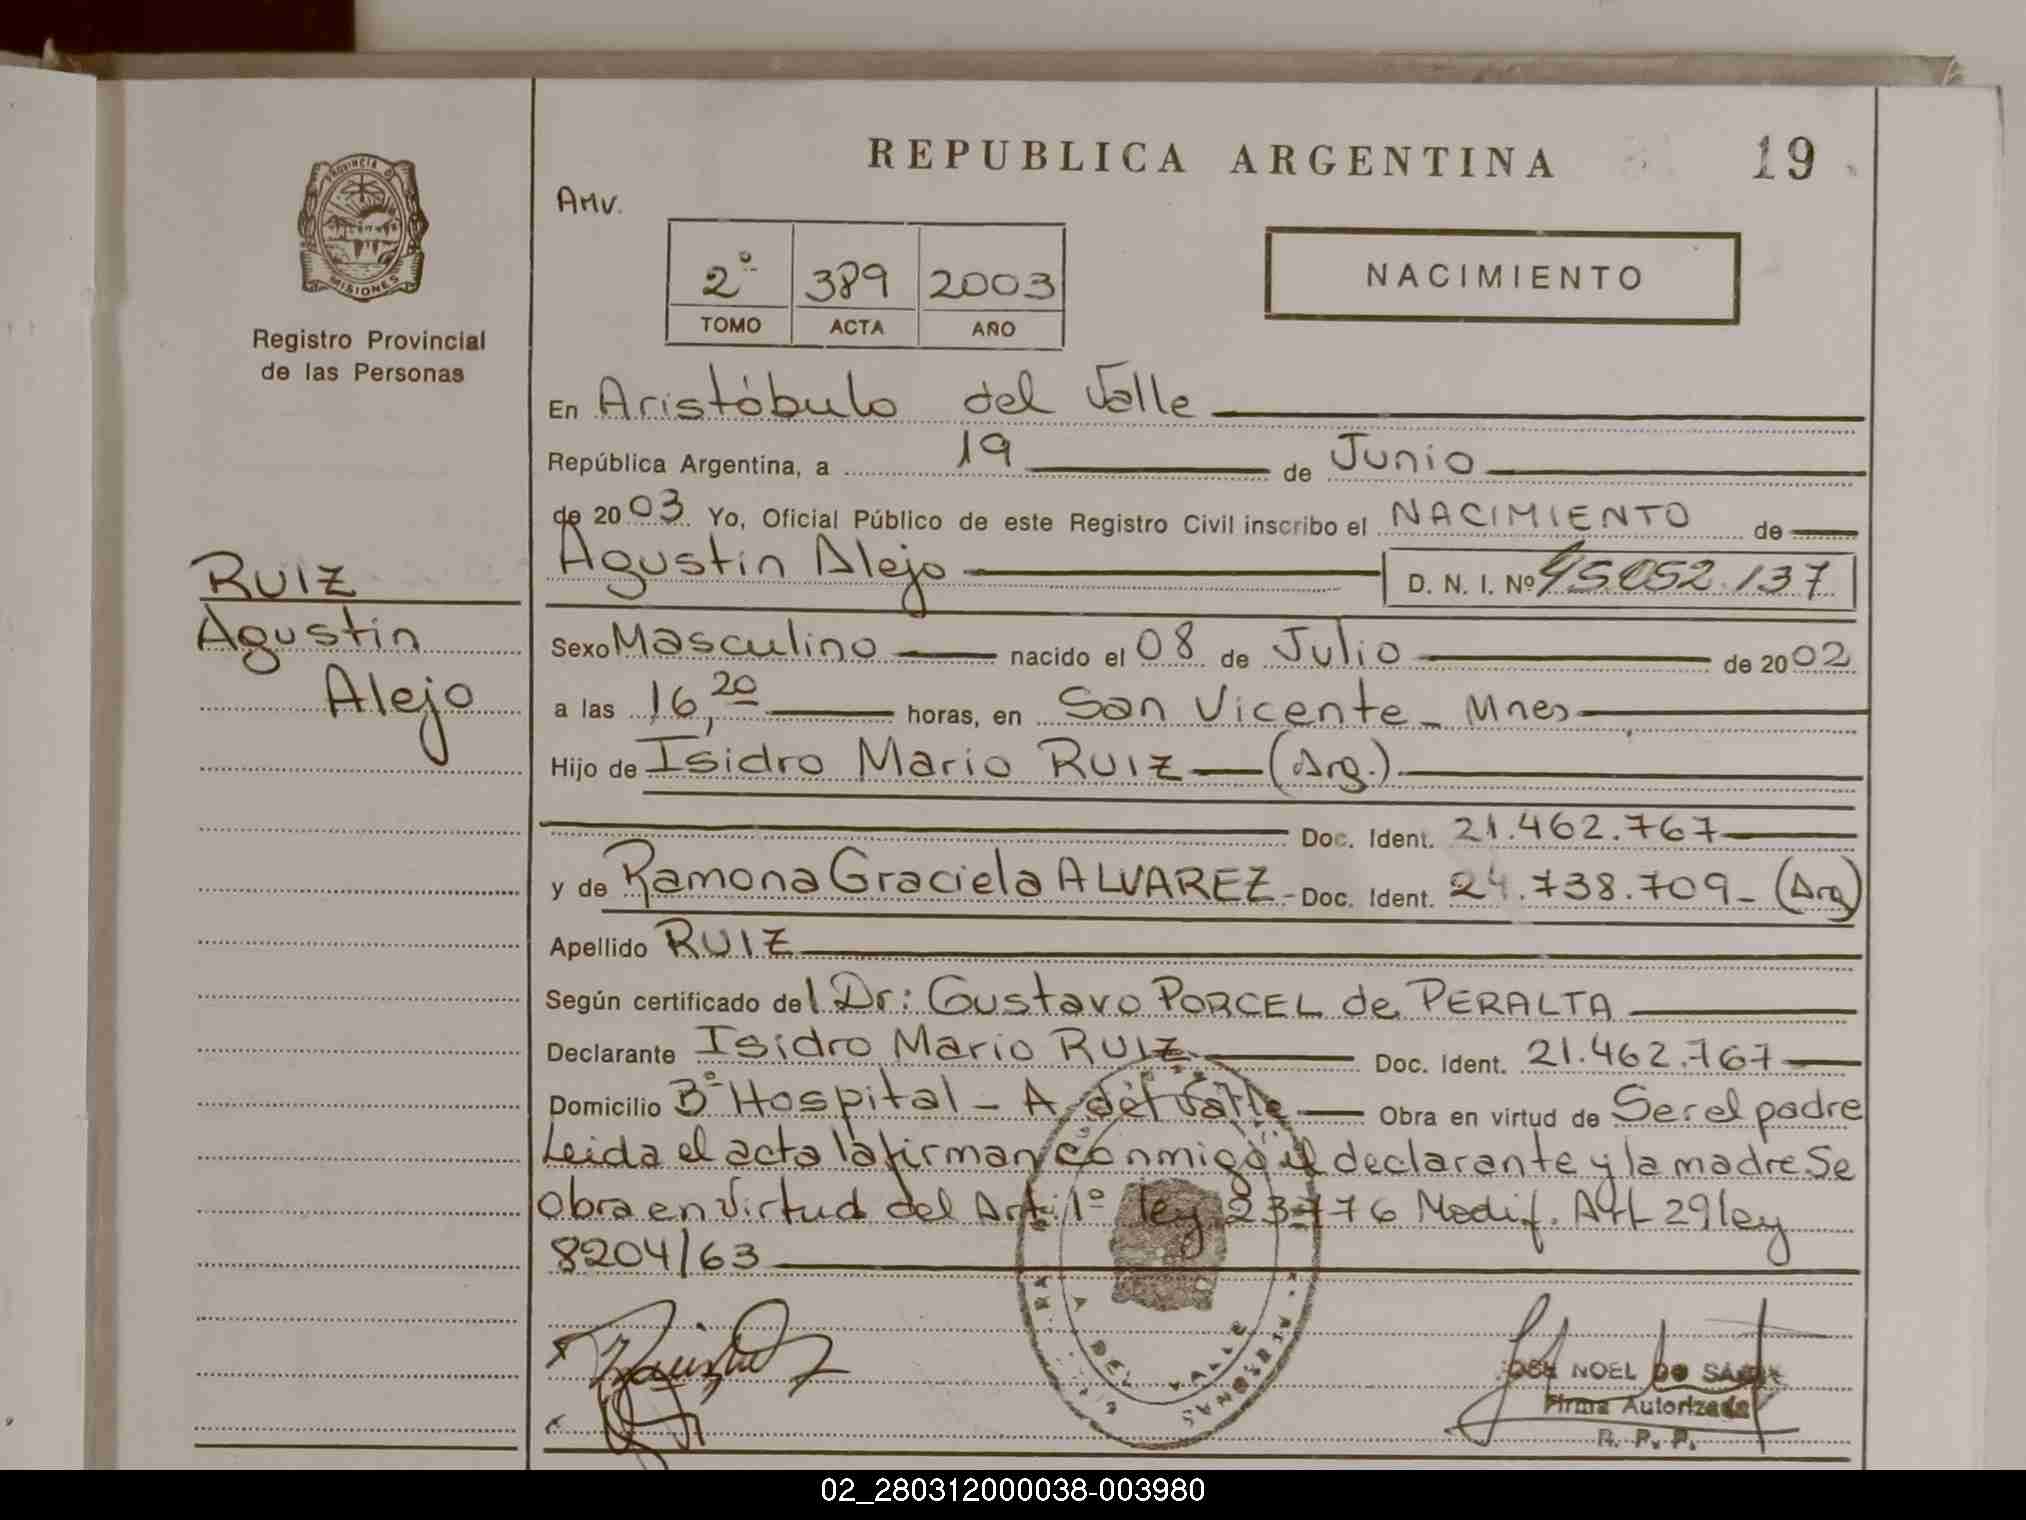 REPUBLICA ARGENTINA
19
AMV.
PROVINCIA D
MISIONES
Registro Provincial
de las Personas
2º 389 2003
TOMO ACTA AÑO
NACIMIENTO
En Aristóbulo del Valle
República Argentina, a 19 de Junio
de 2003 Yo, Oficial Público de este Registro Civil inscribo el NACIMIENTO de
Agustin Alejo D. N. I. Nº 45.052.137
RUIZ
Agustin
Alejo
Sexo Masculino nacido el 08 de Julio de 2002
a las 16,20 horas, en San Vicente - Mnes
Hijo de Isidro Mario RUIZ (Arg.)
Doc. Ident. 21.462.767
y de Ramona Graciela ALVAREZ - Doc. Ident. 24.738.709 - (Arg)
Apellido RUIZ
Según certificado del Dr: Gustavo PORCEL de PERALTA
Declarante Isidro Mario RUIZ Doc. Ident. 21.462.767
Domicilio Bº Hospital - A del Valle Obra en virtud de Ser el padre
Leida el acta la firman conmigo el declarante y la madre Se
obra en virtud del Art. 1º ley 23776 Modif. Art 29 ley
8204/63
A DEL VALLE
NOEL DO
Firma Autorizada
R. P. P.
02_280312000038-003980